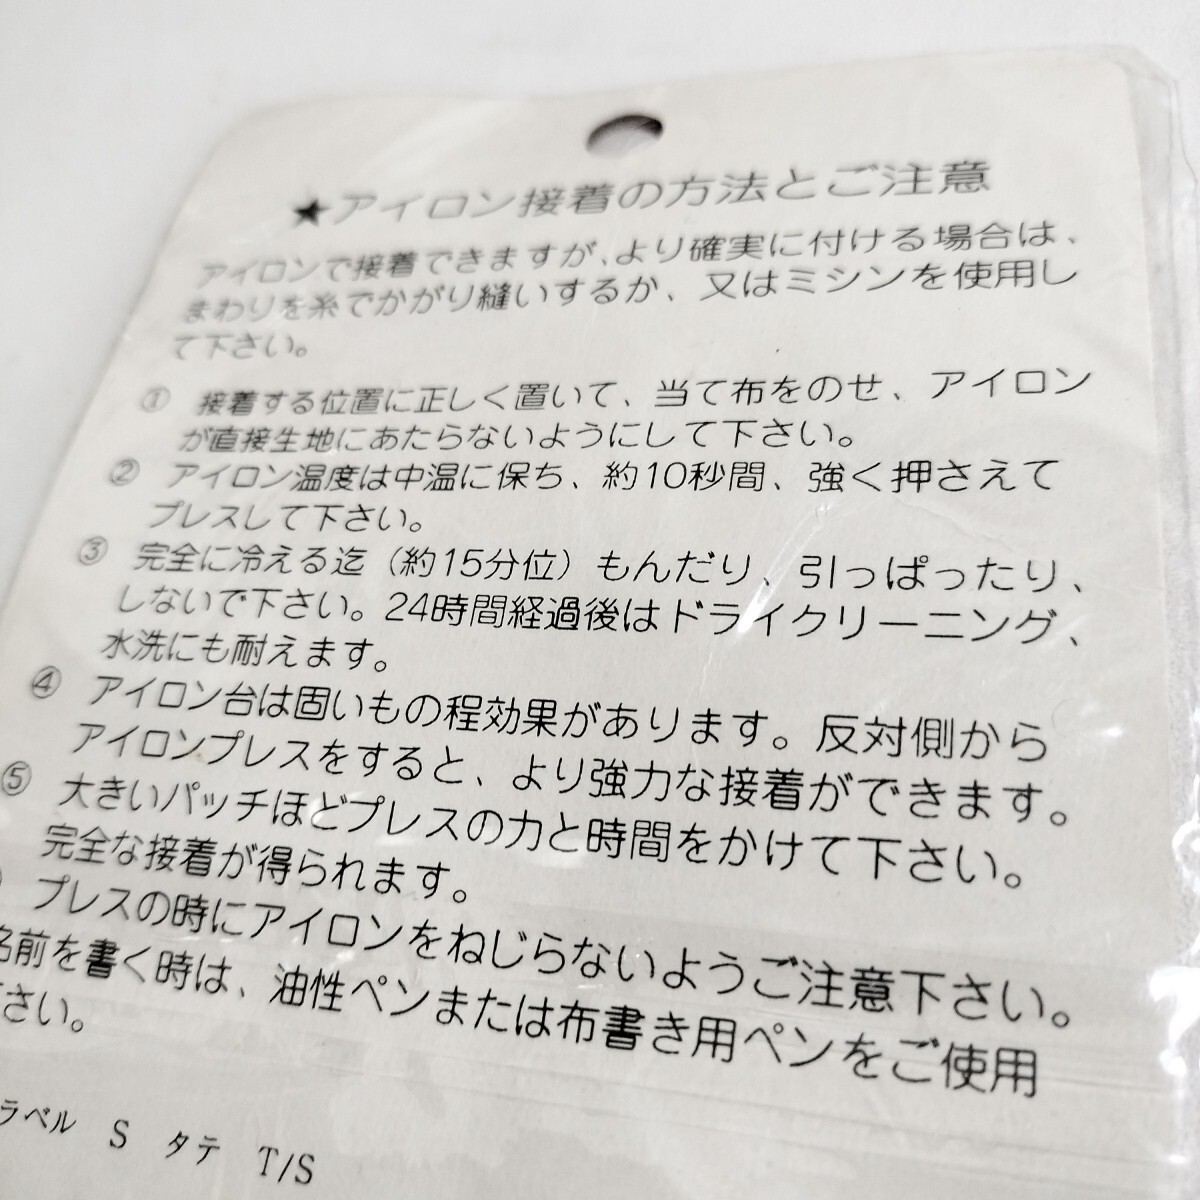 ★アイロン接着の方法とご注意
アイロンで接着できますが、より確実に付ける場合は、
まわりを糸でかがり縫いするか、又はミシンを使用し
て下さい。
① 接着する位置に正しく置いて、当て布をのせ、アイロン
が直接生地にあたらないようにして下さい。
② アイロン温度は中温に保ち、約10秒間、強く押さえて
プレスして下さい。
③ 完全に冷える迄（約15分位）もんだり、引っぱったり、
しないで下さい。24時間経過後はドライクリーニング、
水洗にも耐えます。
④ アイロン台は固いもの程効果があります。反対側から
アイロンプレスをすると、より強力な接着ができます。
⑤ 大きいパッチほどプレスの力と時間をかけて下さい。
完全な接着が得られます。
プレスの時にアイロンをねじらないようご注意下さい。
名前を書く時は、油性ペンまたは布書き用ペンをご使用
下さい。
ラベル S タテ T/S